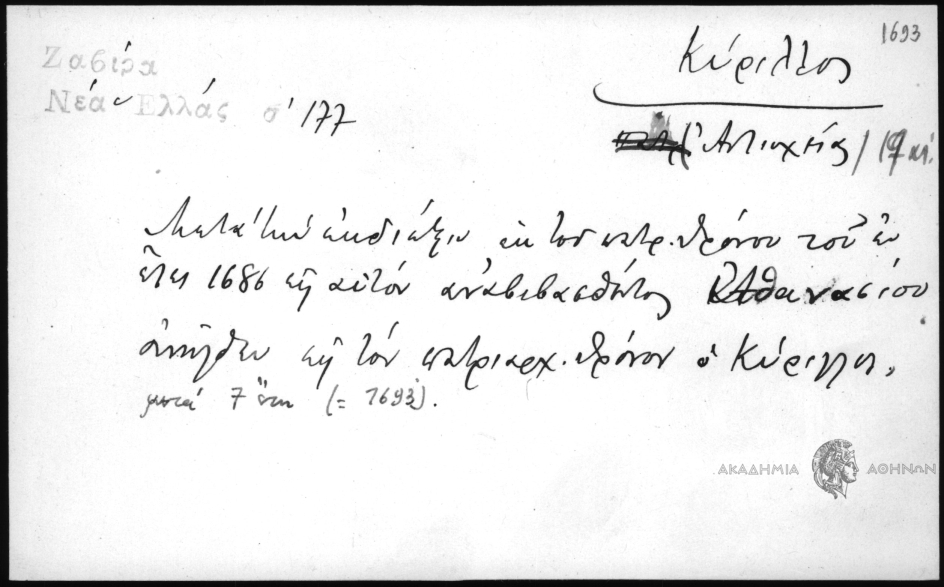 1693
Ζαβίρα
Νέα Ἑλλάς σ' 177
Κύριλλος
Ἀντιοχείας / 17 αἰ.
Μετὰ τὴν ἐκδίωξιν ἐκ τοῦ πατρ. θρόνου τοῦ ἐν
ἔτει 1686 εἰς αὐτὸν ἀναβιβασθέντος Ἀθανασίου
ἀνῆλθεν εἰς τὸν πατριαρχ. θρόνον ὁ Κύριλλος,
μετά 7 ἔτη (= 1693).
ΑΚΑΔΗΜΙΑ ΑΘΗΝΩΝ